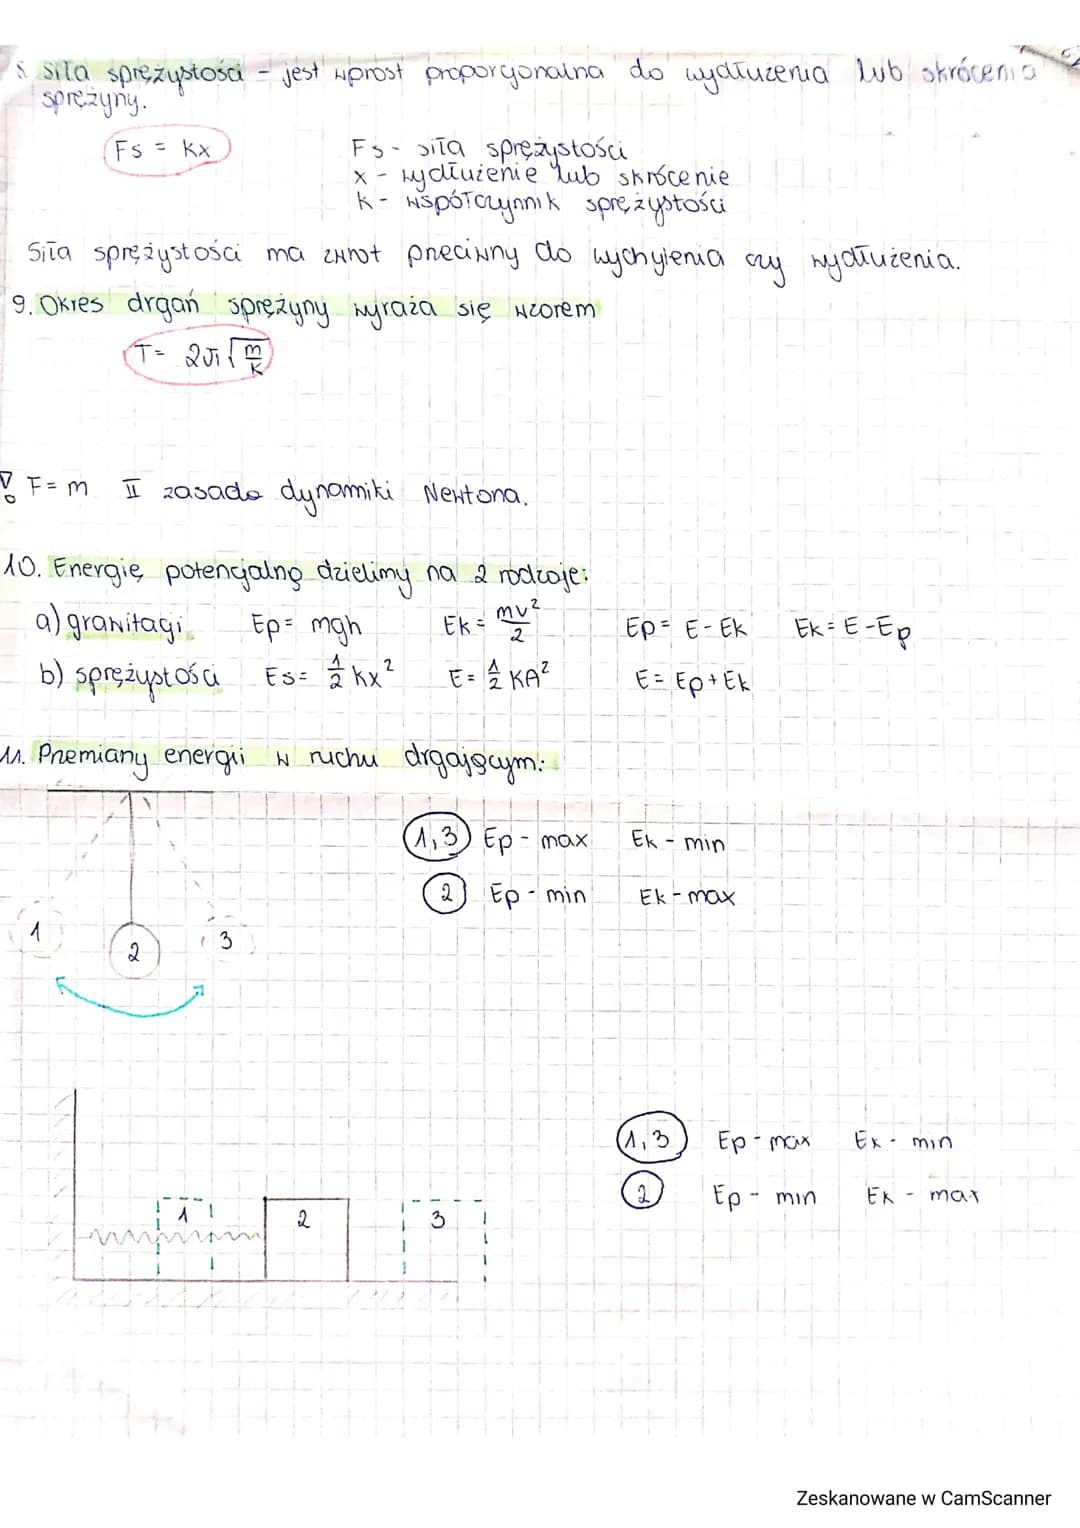 8. Siła sprężystości - jest wprost proporcjonalna do wydłużenia lub skrócenia
sprężyny.
Fs = kx
Fs - siła sprężystości
x - wydłużenie lub skrócenie
k - współczynnik sprężystości
Siła sprężystości ma zwrot przeciwny do wychylenia czy wydłużenia.
9. Okres drgań sprężyny wyraża się wzorem
T = 2π√(m/k)
! F = m II zasada dynamiki Newtona.
10. Energię potencjalną dzielimy na 2 rodzaje:
a) grawitacji Ep = mgh Ek = mv²/2 Ep = E - Ek Ek = E - Ep
b) sprężystości Es = 1/2 kx² E = 1/2 KA² E = Ep + Ek
11. Przemiany energii w ruchu drgającym:
1,3 Ep - max Ek - min
2 Ep - min Ek - max
1
2
3
1,3 Ep - max Ek - min
2 Ep - min Ek - max
1
2
3
Zeskanowane w CamScanner